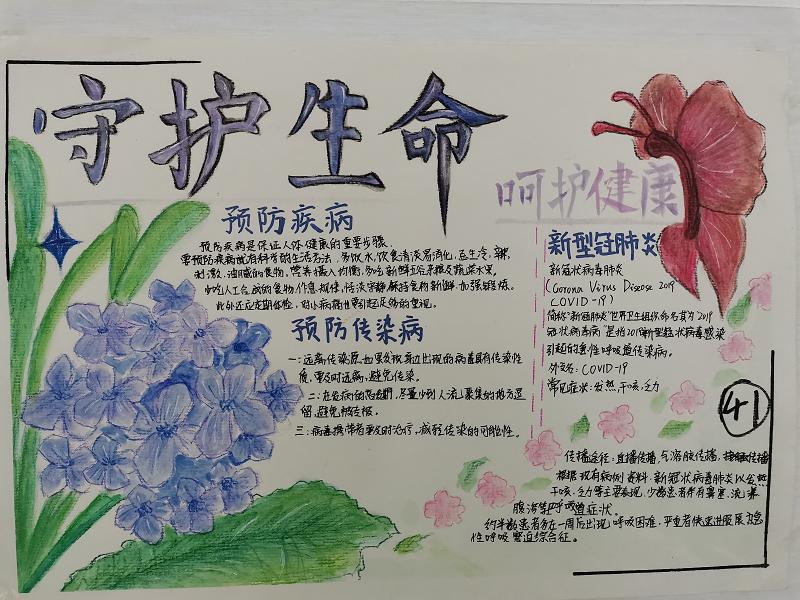 守护生命
呵护健康
预防疾病
预防疾病是保证人体健康的重要步骤，
要预防疾病就有科学的生活方法，多饮水，饮食清淡易消化，忌生冷，辣
刺激，油腻的食物，营养摄入均衡，多吃新鲜五谷杂粮及蔬菜水果。
少吃人工合成的食物作息规律，恬淡宁静，保持食物新鲜，加强锻炼。
此外还应定期体检，对小病痛也要引起足够的重视。
预防传染病
一：远离传染源，如果发现身边出现的病毒具有传染性
质，要及时远离，避免传染。
二：在疫病的高发期，尽量少到人流聚集的地方逗
留，避免被传播。
三：病毒携带者要及时治疗，减轻传染的可能性。
新型冠肺炎
新冠状病毒肺炎
(Corona Virus Disease 2019
COVID-19)
简称"新冠肺炎"世界卫生组织命名其为"2019
冠状病毒病"是指2019新型冠状病毒感染
引起的急性呼吸道传染病。
外文名：COVID-19
常见症状：发热，干咳，乏力
41
传播途径：直播传播，气溶胶传播，接触传播
根据现有病例资料，新冠状病毒肺炎以发热
干咳，乏力等主要表现，少数患者伴有鼻塞，流鼻
腹泻等呼吸道症状。
约半数患者多在一周后出现呼吸困难，严重者快速进展
性呼吸窘迫综合征。